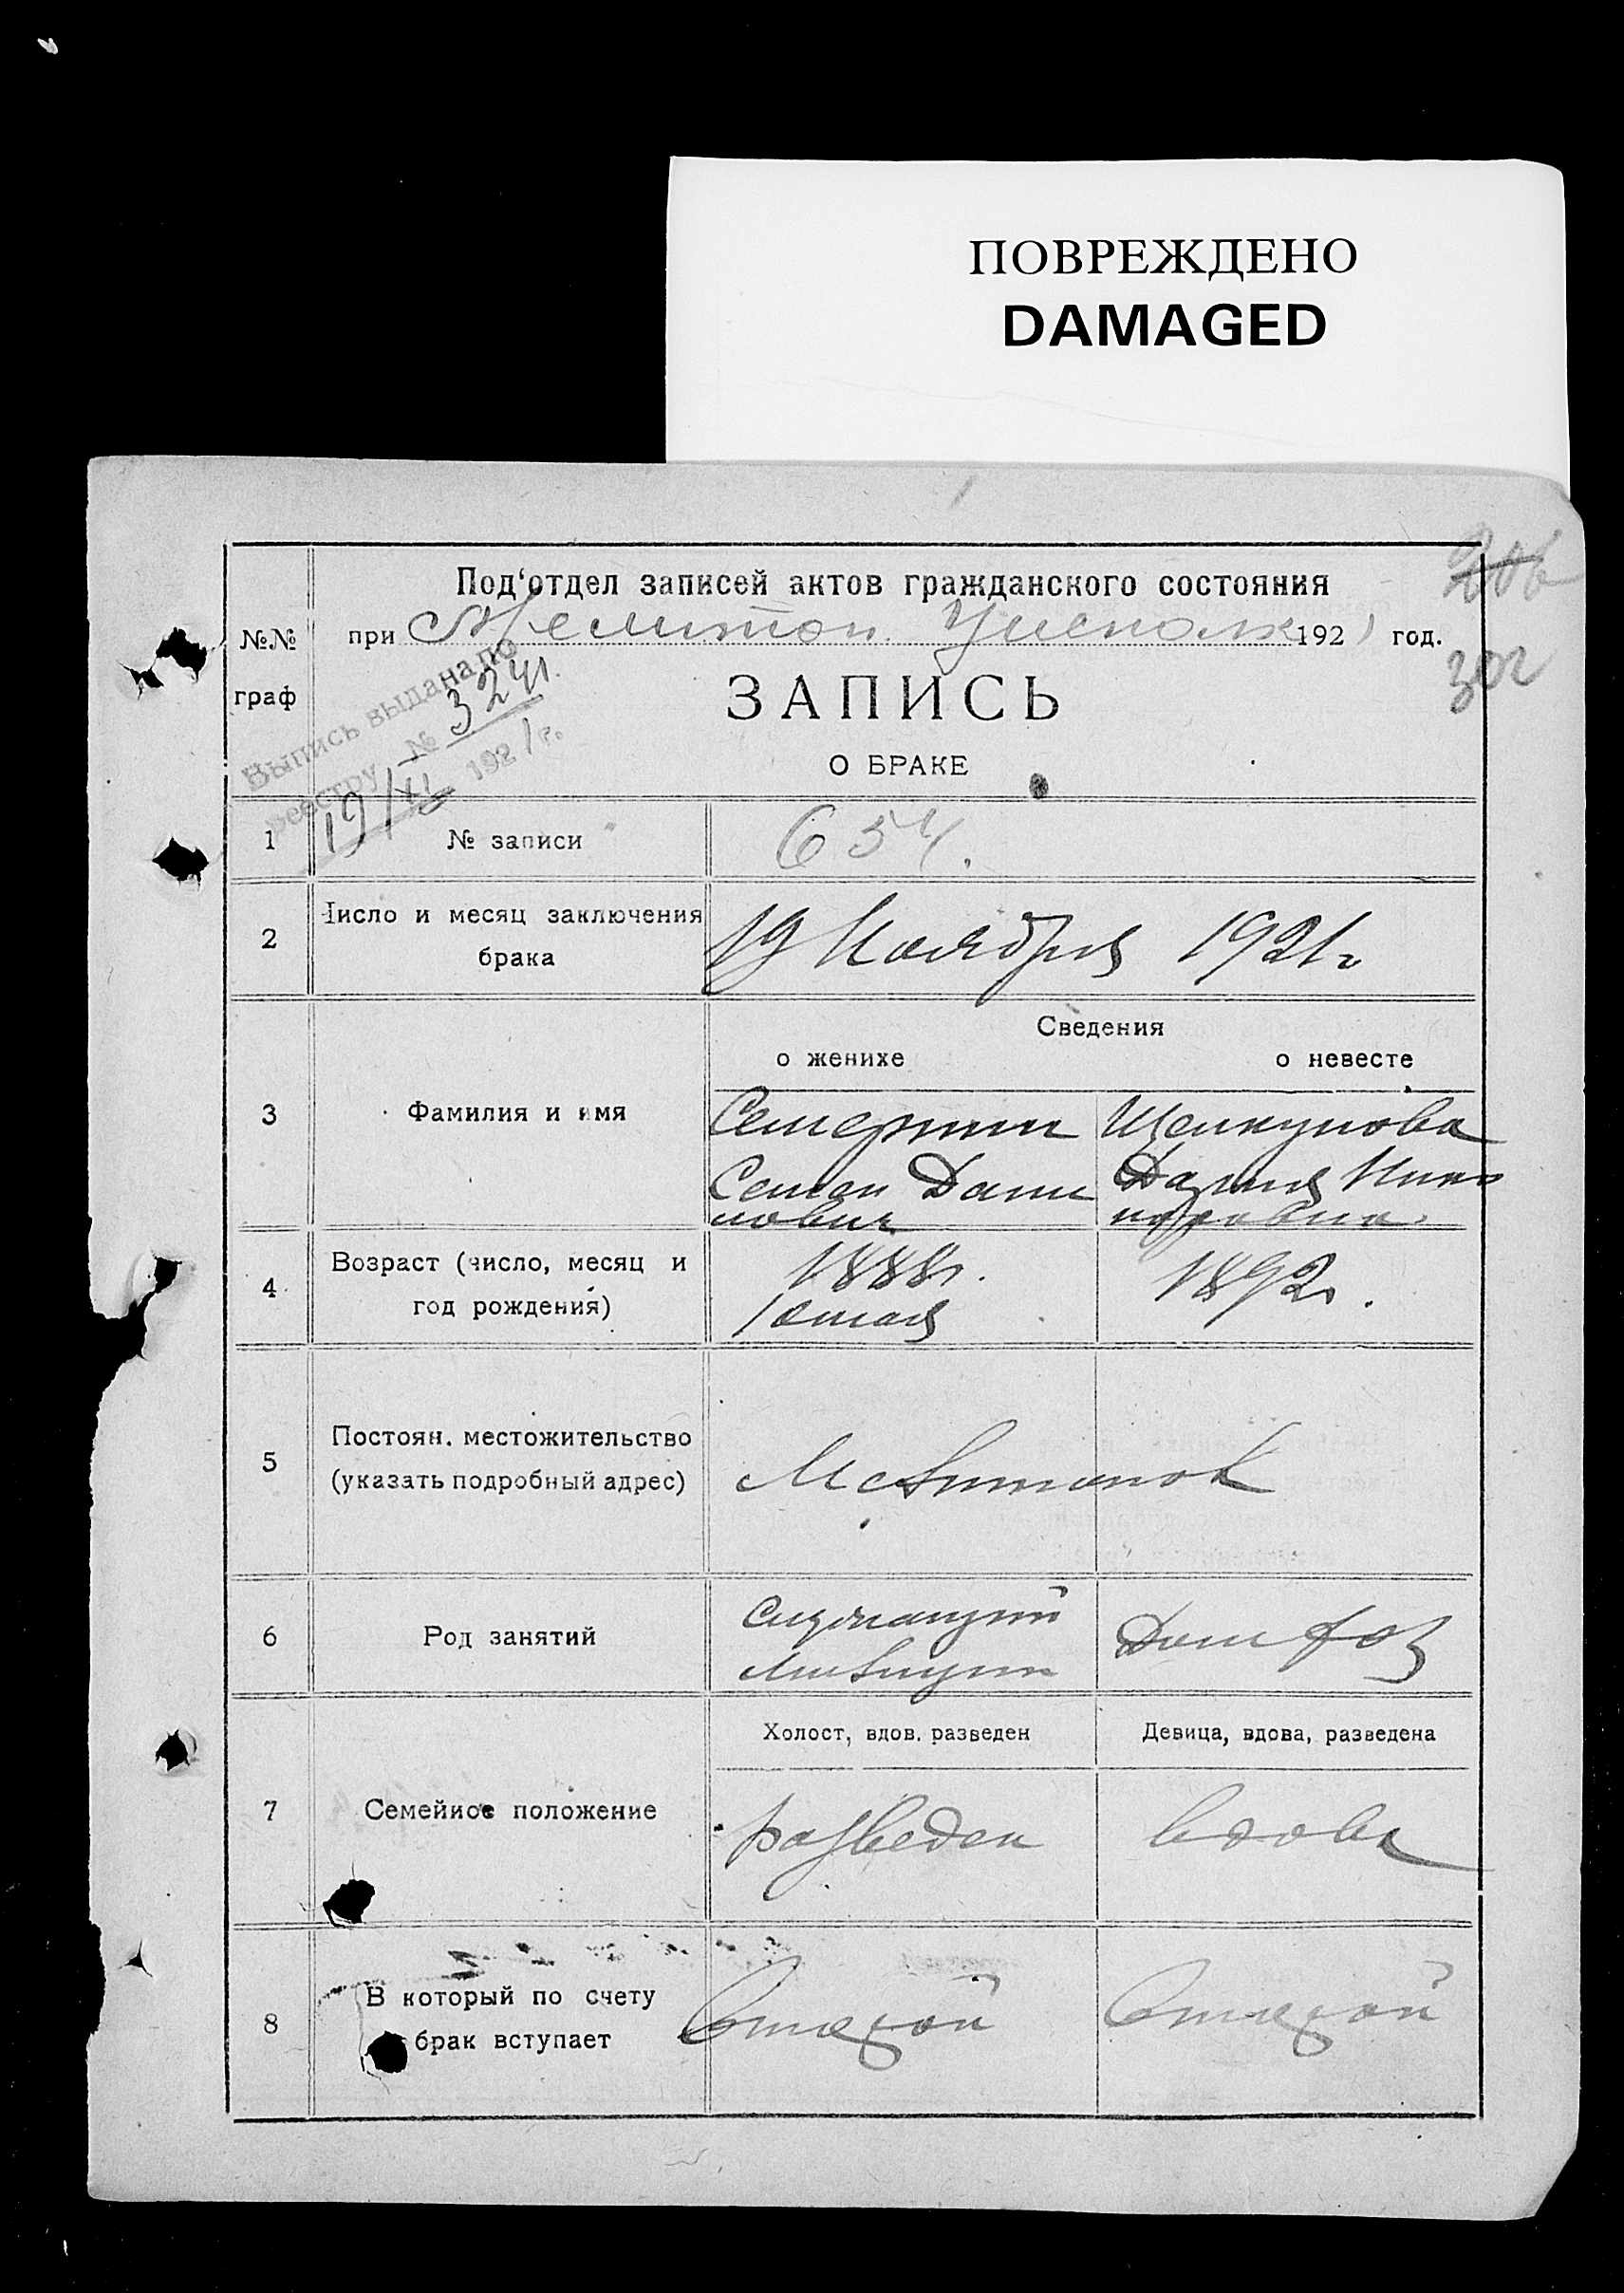 ПОВРЕЖДЕНО
DAMAGED
206
302
Под'отдел записей актов гражданского состояния
№№ граф
при Мелитоп. Уисполк 1921 год.
Выпись выдана по
реестру № 3241
19/XI 1921 г.
ЗАПИСЬ
О БРАКЕ
1 № записи 654.
2 Число и месяц заключения
брака 19 Ноября 1921 г
Сведения
о женихе о невесте
3 Фамилия и имя
Семен Дани Дария Ника
лович норовна
4 Возраст (число, месяц и
год рождения)
1888 г. 1892 г.
5 Постоян. местожительство
(указать подробный адрес)
Мелитополь
6 Род занятий
Служащий Дом хоз
милиции
7 Семейное положение
Холост, вдов. разведен Девица, вдова, разведена
разведен вдова
8 В который по счету
брак вступает
Второй Второй